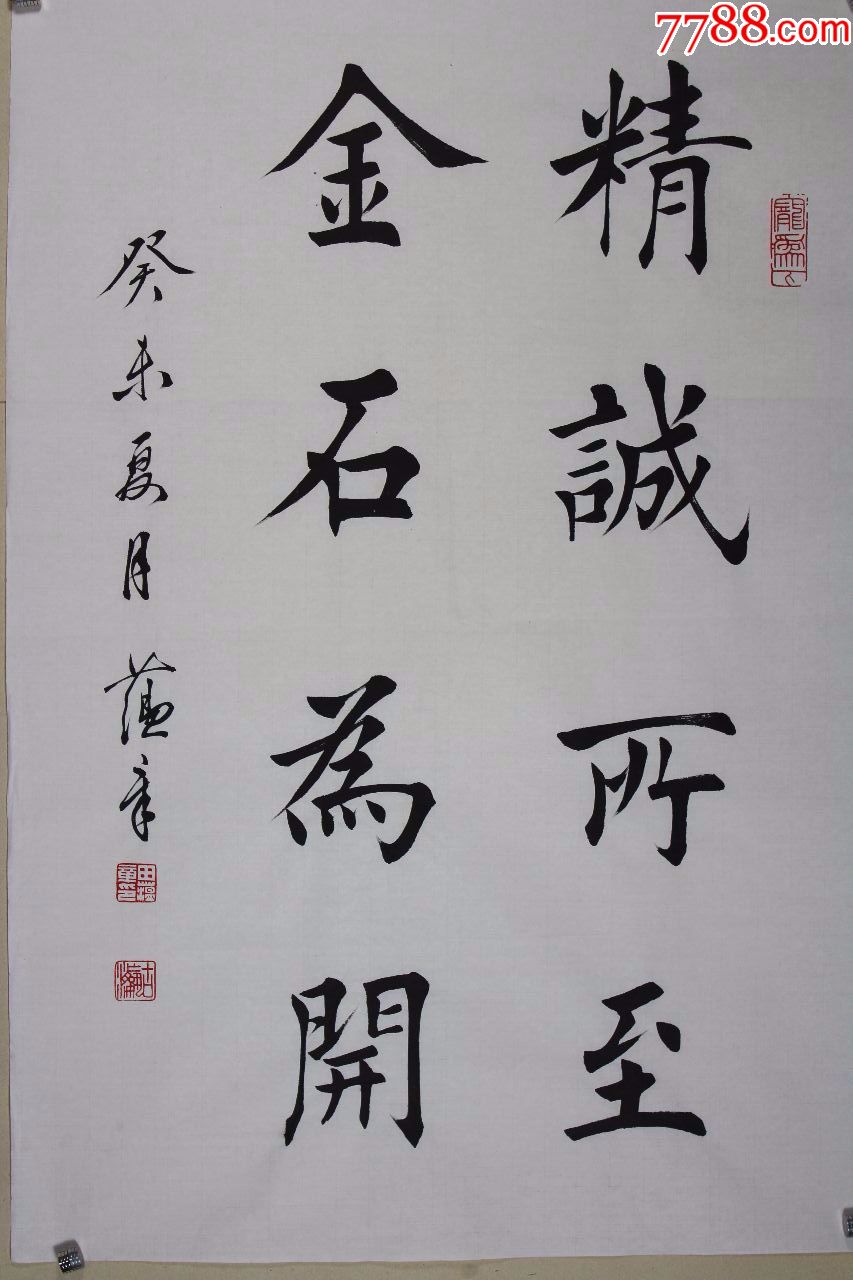 7788.com
精誠所至
金石為開
癸未夏月 蘊章